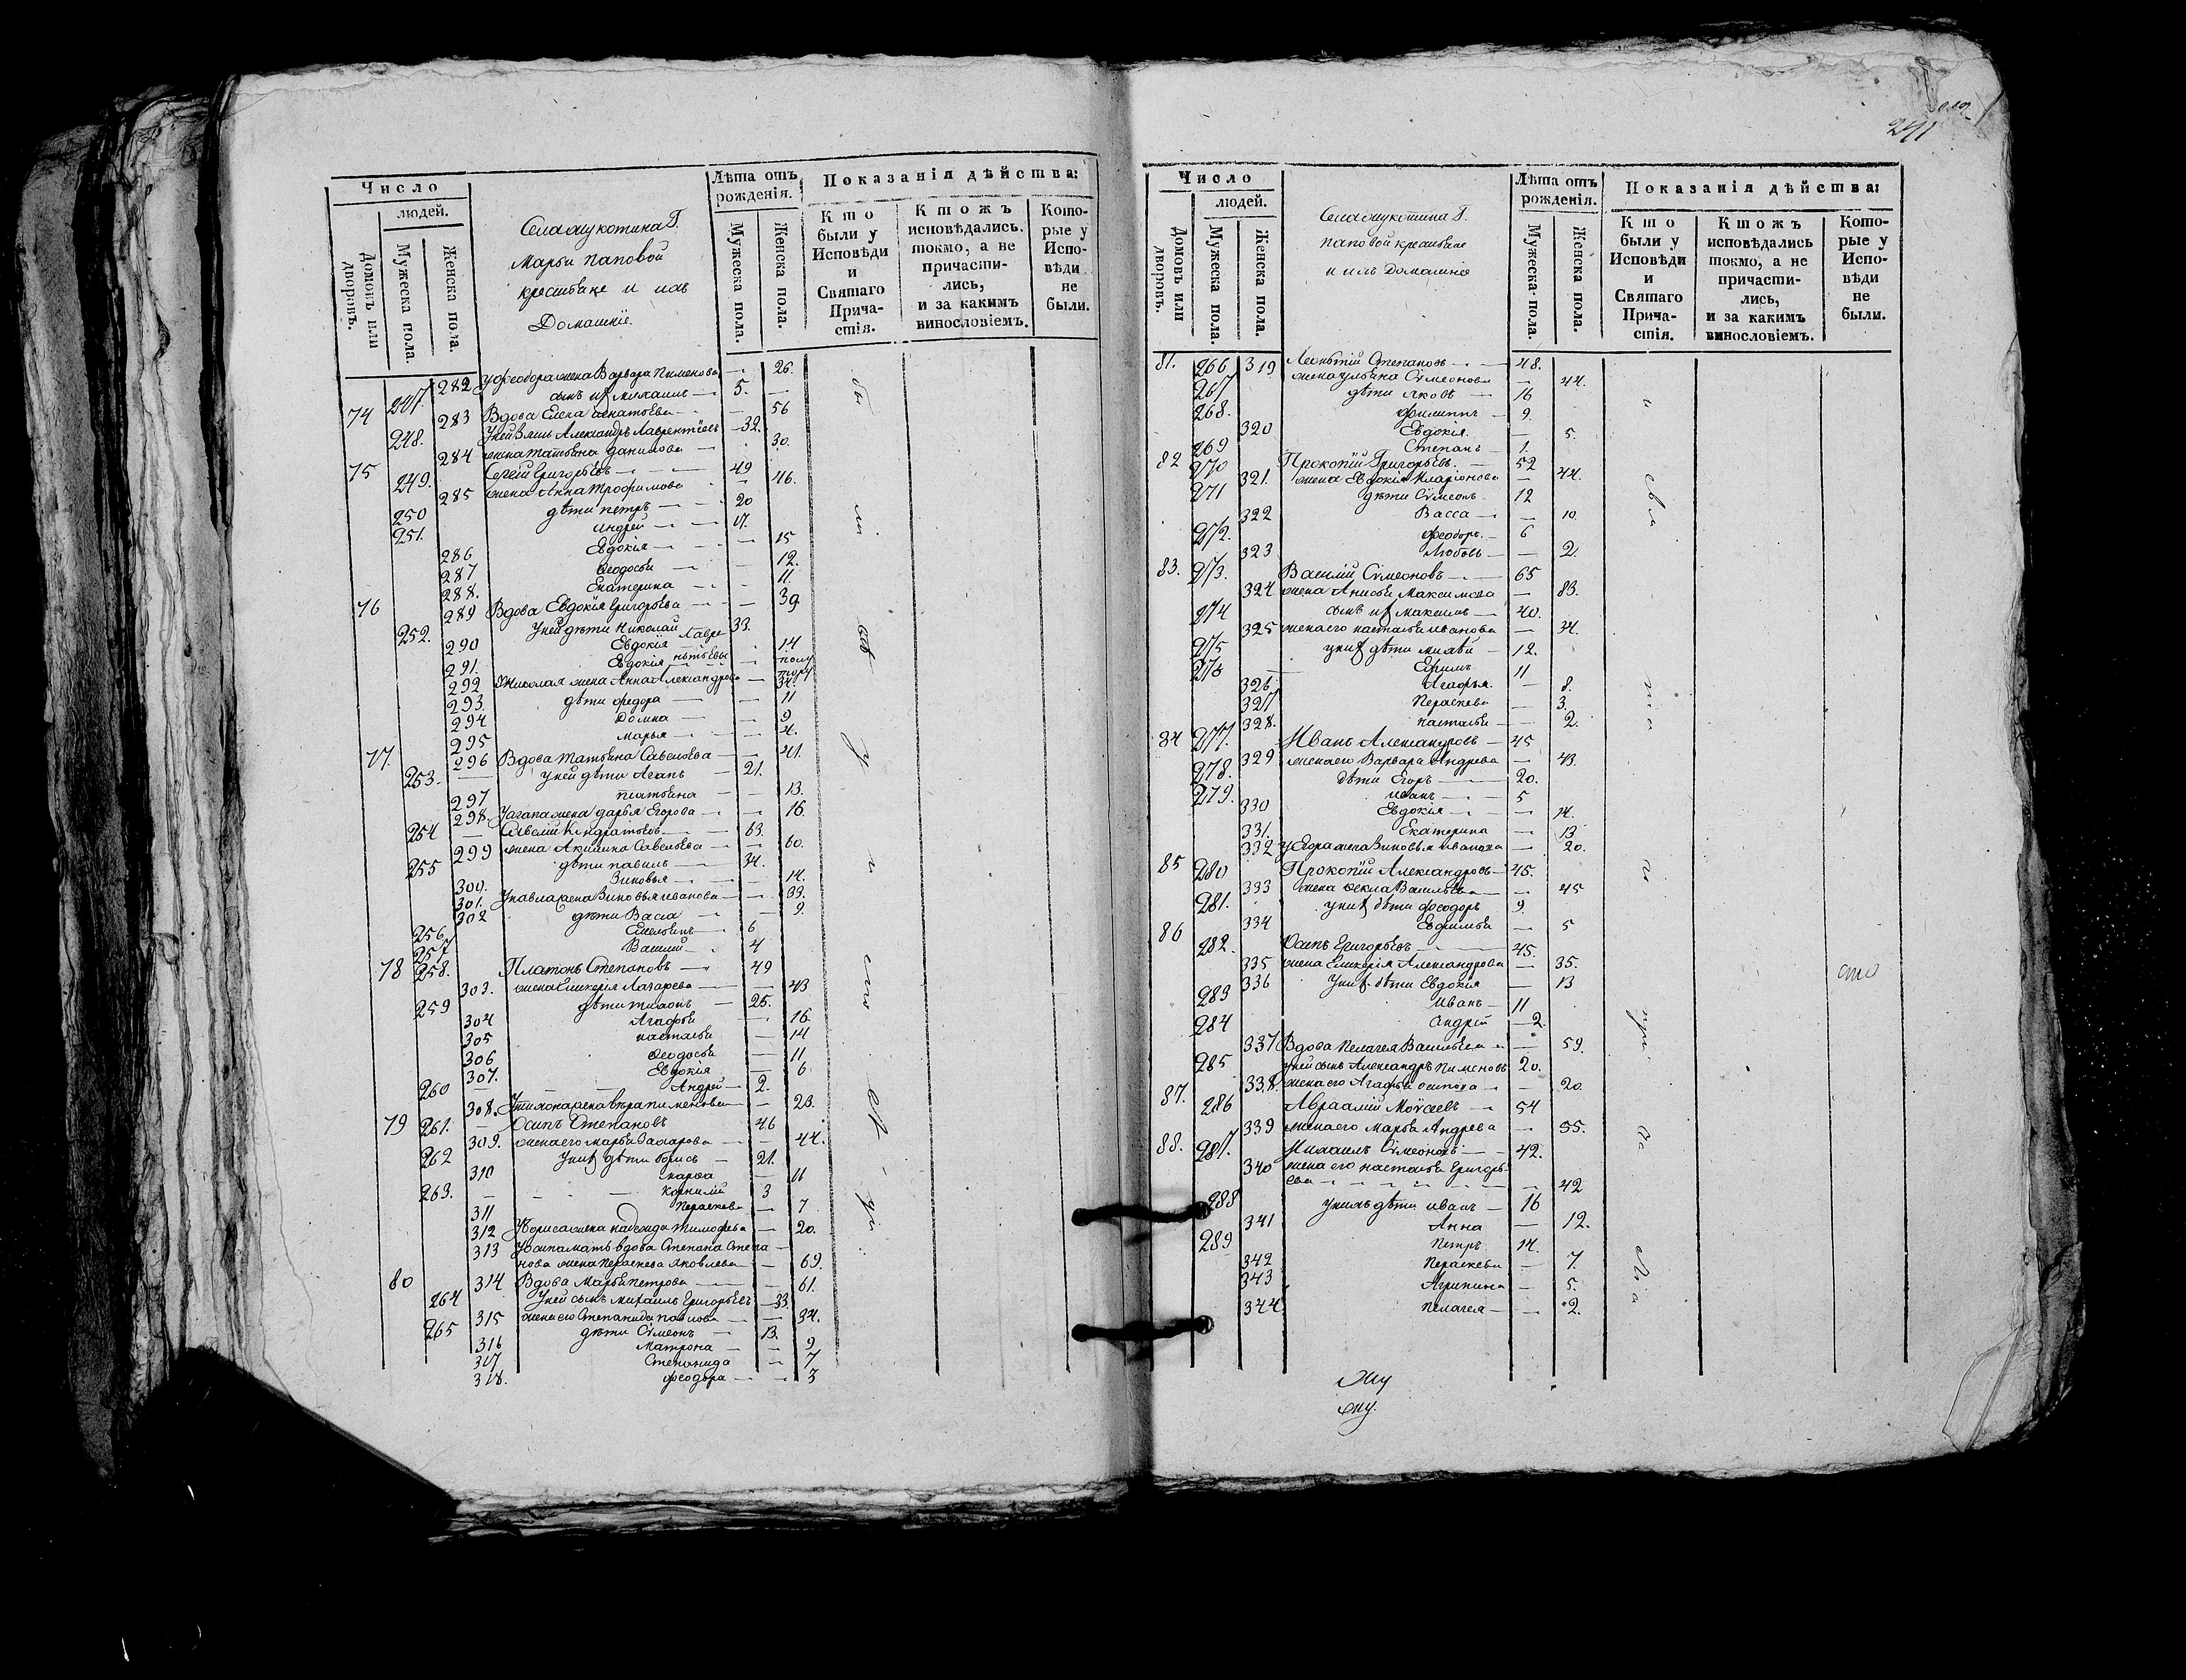 Число
людей.
Домовъ или дворовъ.
Мужеска пола.
Женска пола.
Марьи Паповой
крестьяне и ихъ
Домашніе.
Лѣта отъ рожденія.
Мужеска пола.
Женска пола.
Показанія дѣйства:
Кто были у Исповѣди и Святаго Причастія.
Ктожъ исповѣдались токмо, а не причастились, и за какимъ винословіемъ.
Которые у Исповѣди не были.
282 у Феодора жена Варвара Пименова — 26.
247. сынъ их Михаилъ — 5. —
74 283 Вдова Елена Игнатьева — 56
248. у ней зять Александръ Лаврентіевъ — 32.
284 жена Татьяна Данилова — 30.
75 249. Сергей Григорьевъ — 49
285 жена Анна Трофимова — 46.
250 дѣти Петръ — 20
251. Андрей — 17.
286 Евдокія — 15
287 Феодосья — 12.
288. Екатерина — 11.
76 289 Вдова Евдокія Григорьева — 39.
252. у ней дѣти Николай 33.
290 Евдокія — 14
291. Евдокія
292 у Николая жена Анна Александрова — 34.
293. дѣти Федора — 11
294 Домна — 9
295 Марья — 4.
77. 296 Вдова Татьяна Савельева — 41.
253. у ней дѣти Агапъ — 21.
297 Татьяна — 13.
298. у Агапа жена Дарья Егорова — 16.
254 Савелій Кндратьевъ — 63.
299 жена Акилина Савельева — 60.
255 дѣти Павилъ — 34.
300. Зиновья — 14.
301. у Павла жена Зиновья Иванова — 33.
302 дѣти Васса — 9.
256. Емельянъ — 6
257 Василий — 4
78 258. Платонъ Степановъ — 49
303. жена Гликерія Лазарева — 43
259 дѣти Тихонъ — 26.
304 Агафья — 16.
305 Настасья — 14
306 Феодосья — 11
307. Евдокия — 6
260 Андрей — 2.
308. у Тихона жена Вѣра Пименова — 23.
79 261. Осипъ Степановъ 46
309. жена его Марья Захарова — 44.
262 у них дѣти Борисъ — 21.
310 Марѳа — 11
263. Корнилій 3
311 Пераскева — 7
312 у Бориса жена Надежда Тимофева — 20.
313 у Осипа мать вдова Степана Степа
нова жена Пераскева Яковлева — 69.
80 314 Вдова Марья Петрова — 61.
264 у ней сынъ Михаилъ Григорьевъ — 33.
315 жена его Степанида Павлова — 34.
265 дѣти Сѵмеонъ — 13.
316 Матрона — 9
317 Степанида — 7
318. Феодора — 3
241
Число
людей.
Домовъ или дворовъ.
Мужеска пола.
Женска пола.
Паповой крестьяне
и ихъ Домашніе
Лѣта отъ рожденія.
Мужеска пола.
Женска пола.
Показанія дѣйства:
Кто были у Исповѣди и Святаго Причастія.
Ктожъ исповѣдались токмо, а не причастились, и за какимъ винословіемъ.
Которые у Исповѣди не были.
81. 266 Леонтій Степановъ — 48.
319 жена Ульяна Сѵмеонова — 44.
267 дѣти Яковъ — 16
268. Филиппъ — 9.
320 Евдокія. — 5.
269 Степанъ — 1.
82 270 Прокопій Григорьевъ. — 52
321. жена Евдокія Иларіонова — 44.
271 дѣти Сѵмеонъ 12
322 Васса — 10.
272. Феодоръ. — 6
323 Любовь — 2.
83. 273. Василій Сѵмеоновъ — 65
324 жена Анисья Максимова — 83.
274 сынъ их Максимъ — 40.
325 жена его Настасья Иванова — 34.
275 у них дѣти — 12.
276 Ефимъ 11
326. Агафья. — 8.
327 Пераскева — 3.
328. Настасья — 2.
84 277. Иванъ Александровъ — 45
329 жена его Варвара Андрева — 43.
278. дѣти Егоръ — 20.
279. Иванъ — 5
330 Евдокія — 14.
331. Екатерина — 13
332 у Егора жена Зиновья Иванова — 20.
85 280 Прокопій Александровъ — 45.
333 жена Фекла Васильева — 45
281. у них дѣти Феодоръ 9.
334 Евфимья — 5
86 282. Осипъ Григорьевъ — 45.
335 жена Гликерія Александрова — 35.
336 у них дѣти Евдокия — 13
283 Иванъ — 11
284 Андрей — 2.
337 Вдова Пелагея Васильева — 59.
285 у ней сынъ Александръ Пименовъ 20.
338. жена его Агафья Осипова — 20.
87. 286 Авраамій Моѵсеевъ — 54
339 жена его Марья Андрева — 55.
88. 287. Михаилъ Сѵмеоновъ — 42.
340 жена его Настасья Григорь
ева — 42
288 у нихъ дѣти Иванъ — 16
341 Анна — 12.
289 Петръ 14.
342 Пераскева — 7.
343 Агрипина — 5.
344 Пелагея — 2.